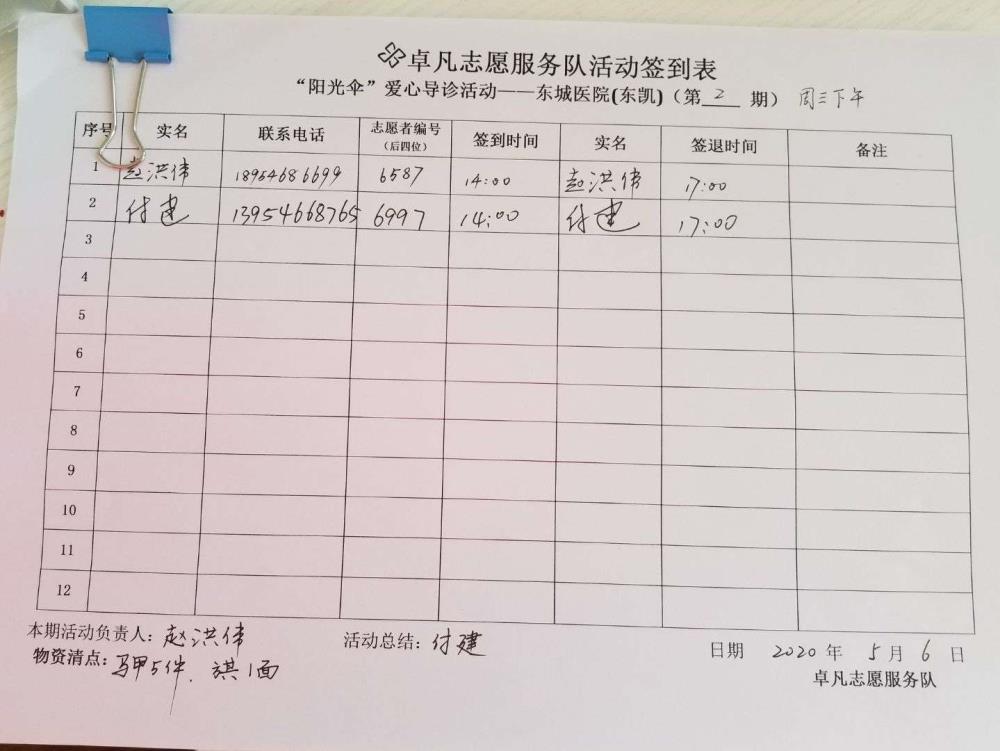 卓凡志愿服务队活动签到表
“阳光伞”爱心导诊活动——东城医院(东凯)（第 2 期） 周三下午
序号 实名 联系电话 志愿者编号（后四位） 签到时间 实名 签退时间 备注
1 赵洪伟 18954686699 6587 14:00 赵洪伟 17:00
2 付建 13954668765 6997 14:00 付建 17:00
3
4
5
6
7
8
9
10
11
12
本期活动负责人：赵洪伟 活动总结：付建 日期 2020 年 5 月 6 日
物资清点：马甲5件、旗1面 卓凡志愿服务队